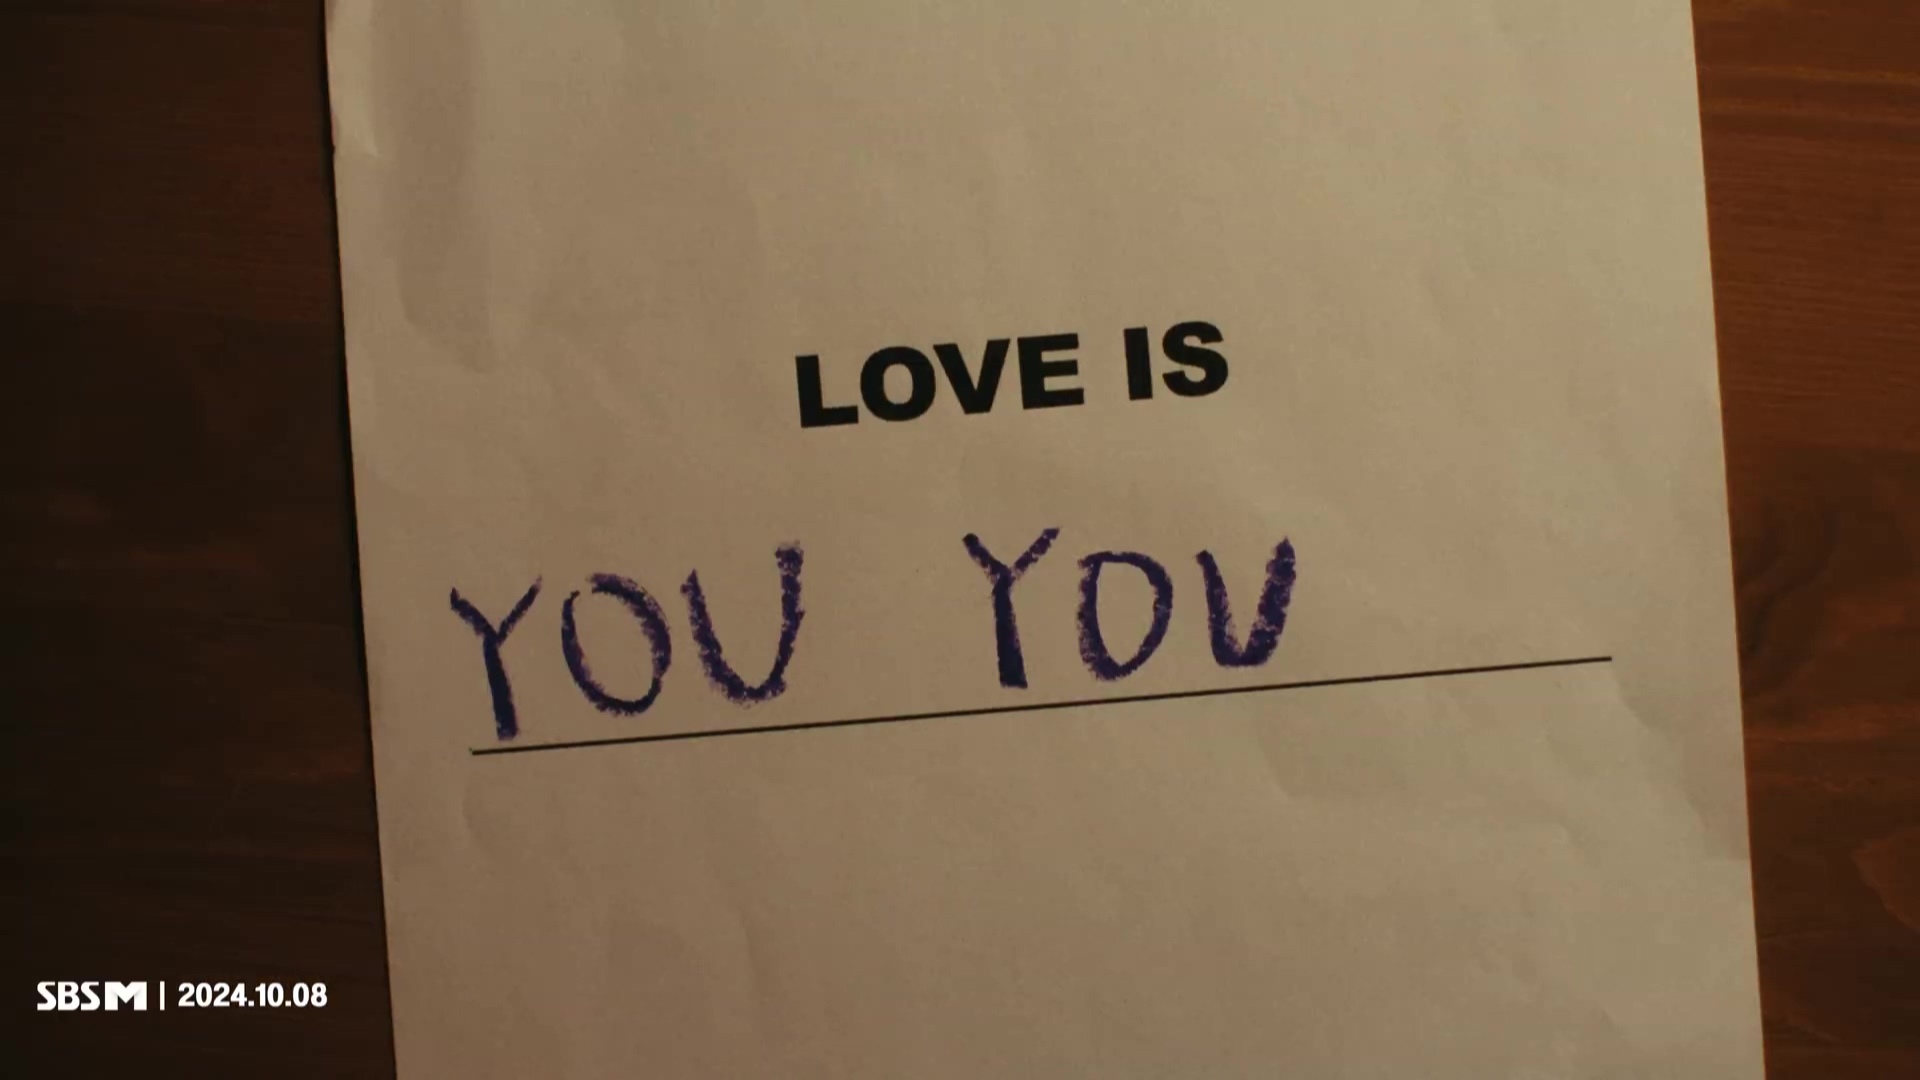 LOVE IS
YOU YOU
SBS M | 2024.10.08